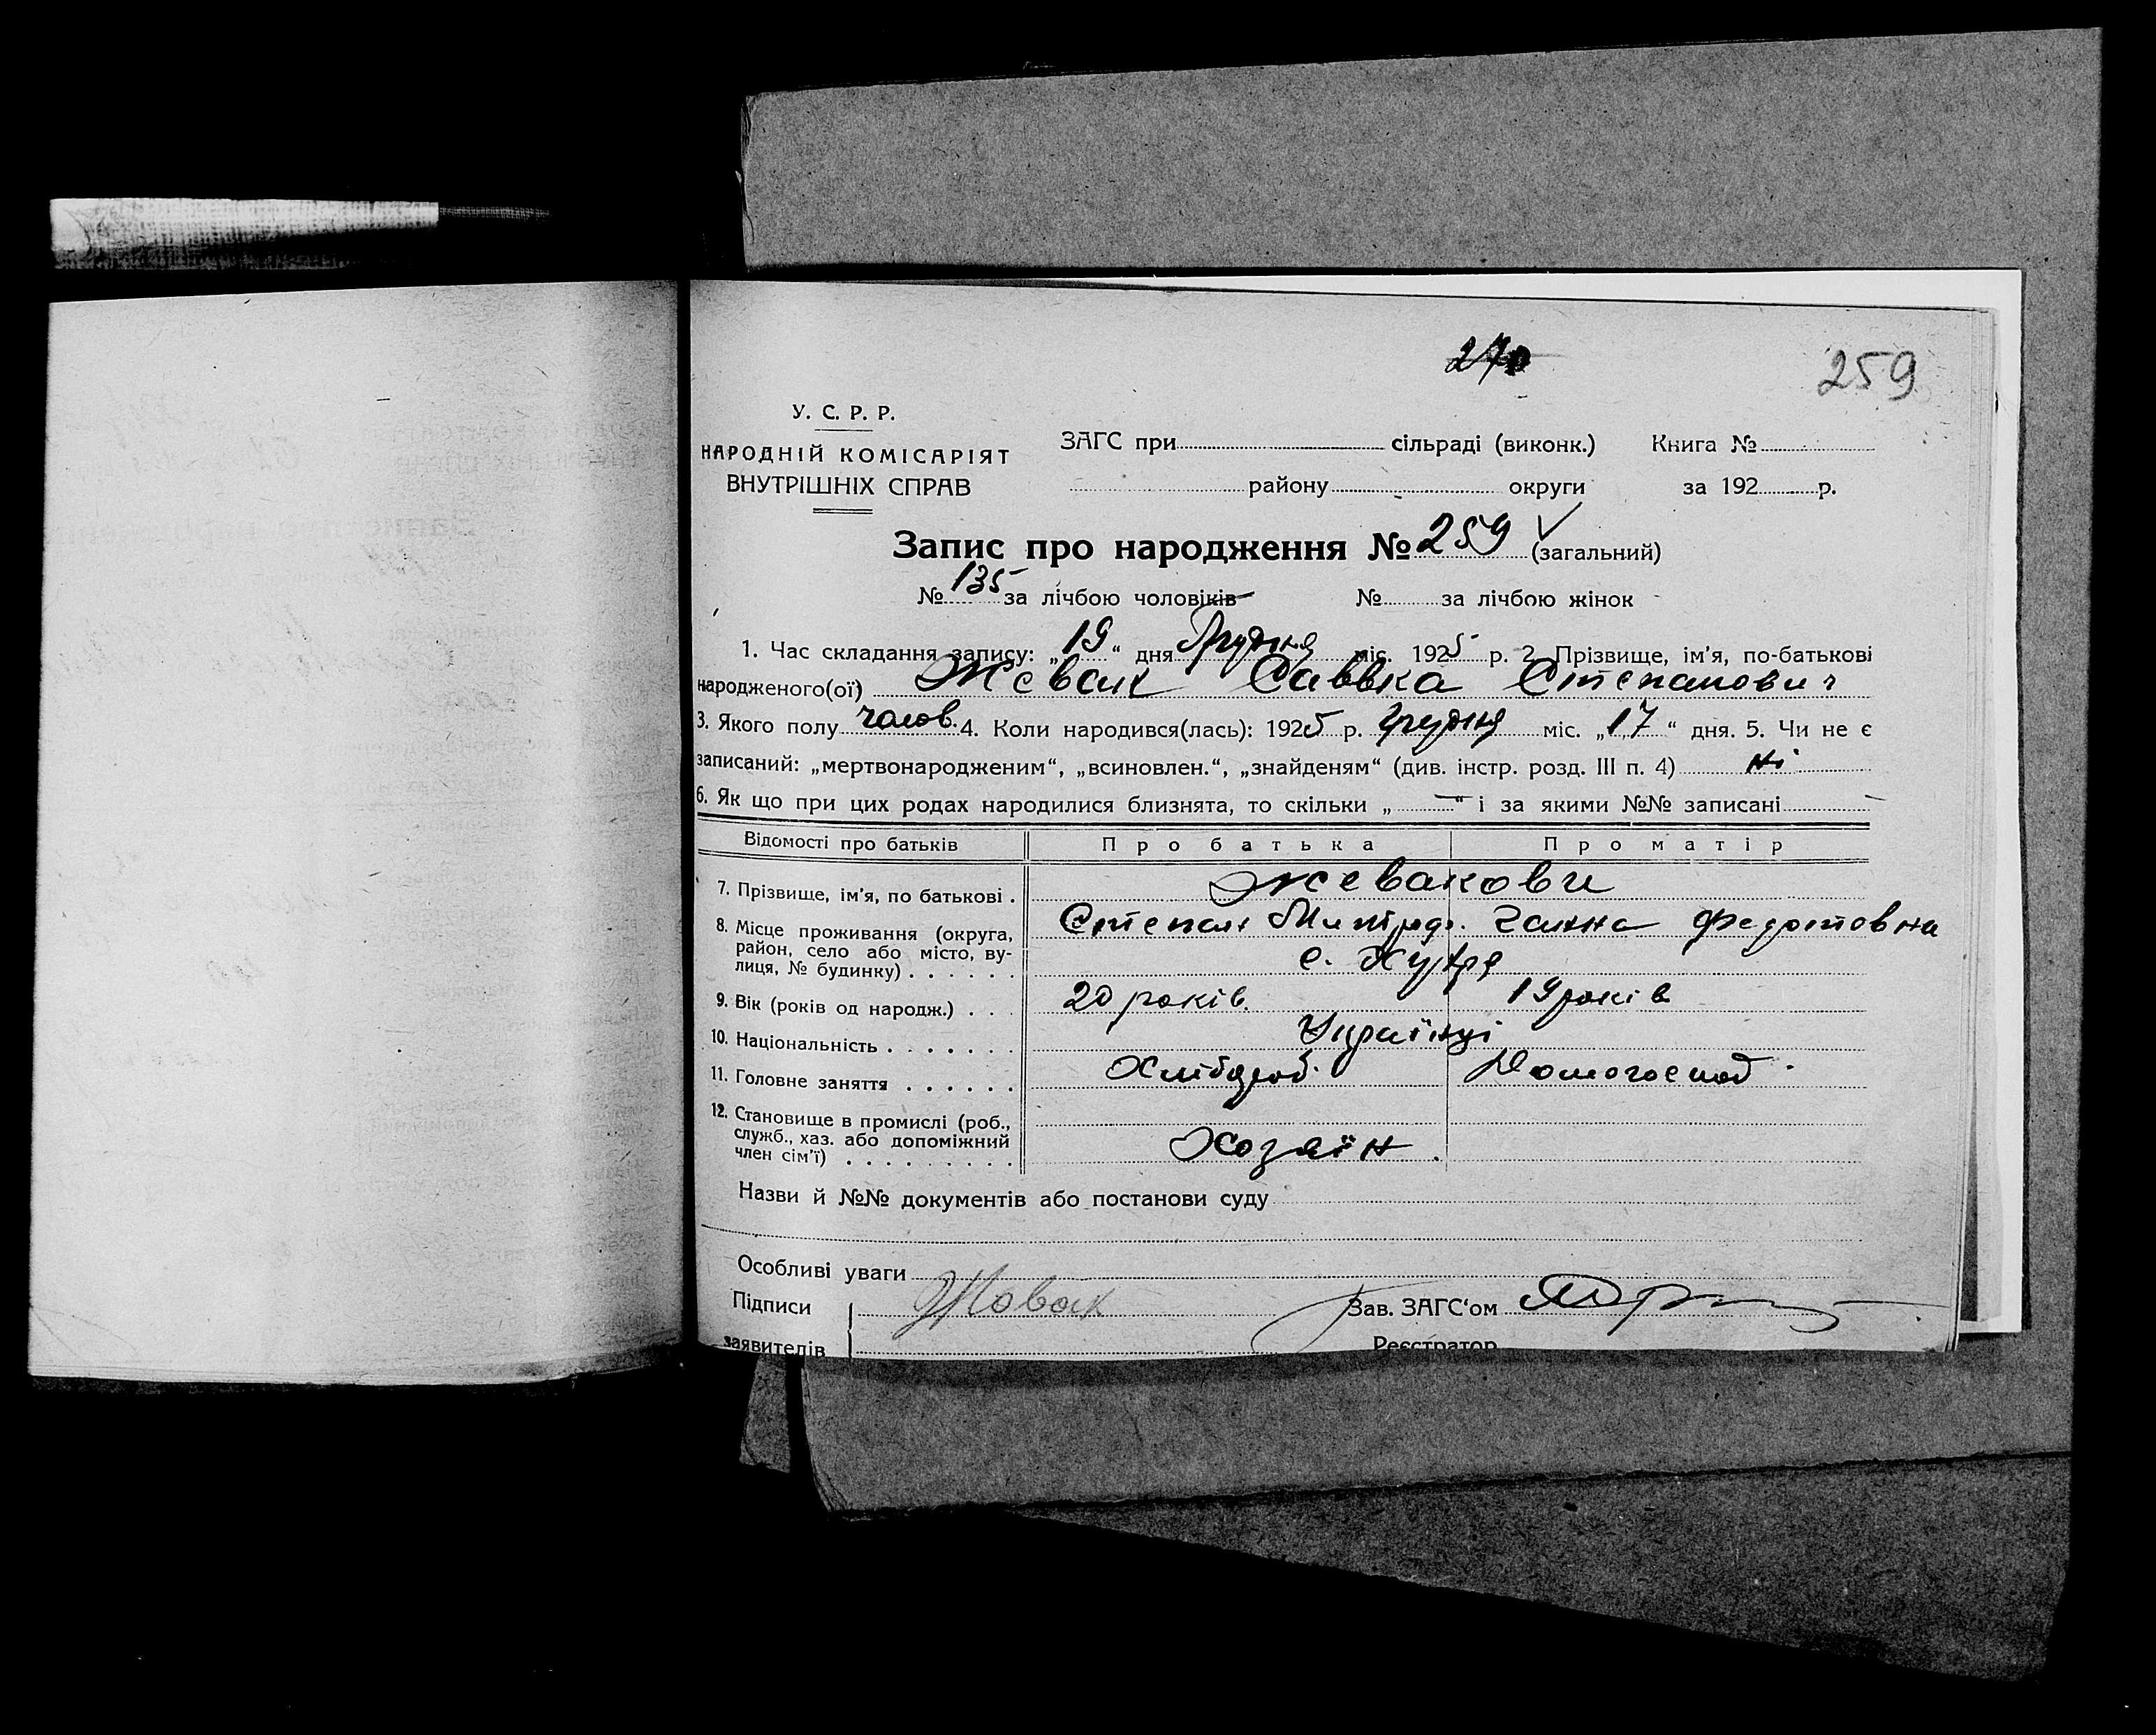 270
259
У. С. Р. Р.
НАРОДНІЙ КОМІСАРІЯТ
ВНУТРІШНІХ СПРАВ
ЗАГС при сільраді (виконк.) Книга №
району округи за 192 р.
Запис про народження № 259 (загальний)
№ 135 за лічбою чоловіків № за лічбою жінок
1. Час складання запису: „19“ дня Грудня міс. 1925 р. 2. Прізвище, ім'я, по-батькові
народженого(ої) Жевак Саввка Степанович
3. Якого полу чолов. 4. Коли народився(лась): 1925 р. Грудня міс. „17“ дня. 5. Чи не є
записаний: „мертвонародженим“, „всиновлен.“, „знайденям“ (див. інстр. розд. III п. 4) ні
6. Як що при цих родах народилися близнята, то скільки „—“ і за якими №№ записані —
Відомості про батьків Про батька Про матір
7. Прізвище, ім'я, по батькові . Жевакови
Степан Митроф. Ганна Федотовна
8. Місце проживання (округа,
район, село або місто, вулиця, № будинку) . . . . . . с.
9. Вік (років од народж.) . . . 20 років. 19 років
10. Національність . . . . . . . Українці
11. Головне заняття . . . . . . Хлібороб. Домогоспод.
12. Становище в промислі (роб.,
служб., хаз. або допоміжний
член сім'ї) . . . . . . . . . Хозяїн.
Назви й №№ документів або постанови суду
Особливі уваги
Підписи Жовак Зав. ЗАГС‘ом
заявителів Реєстратор